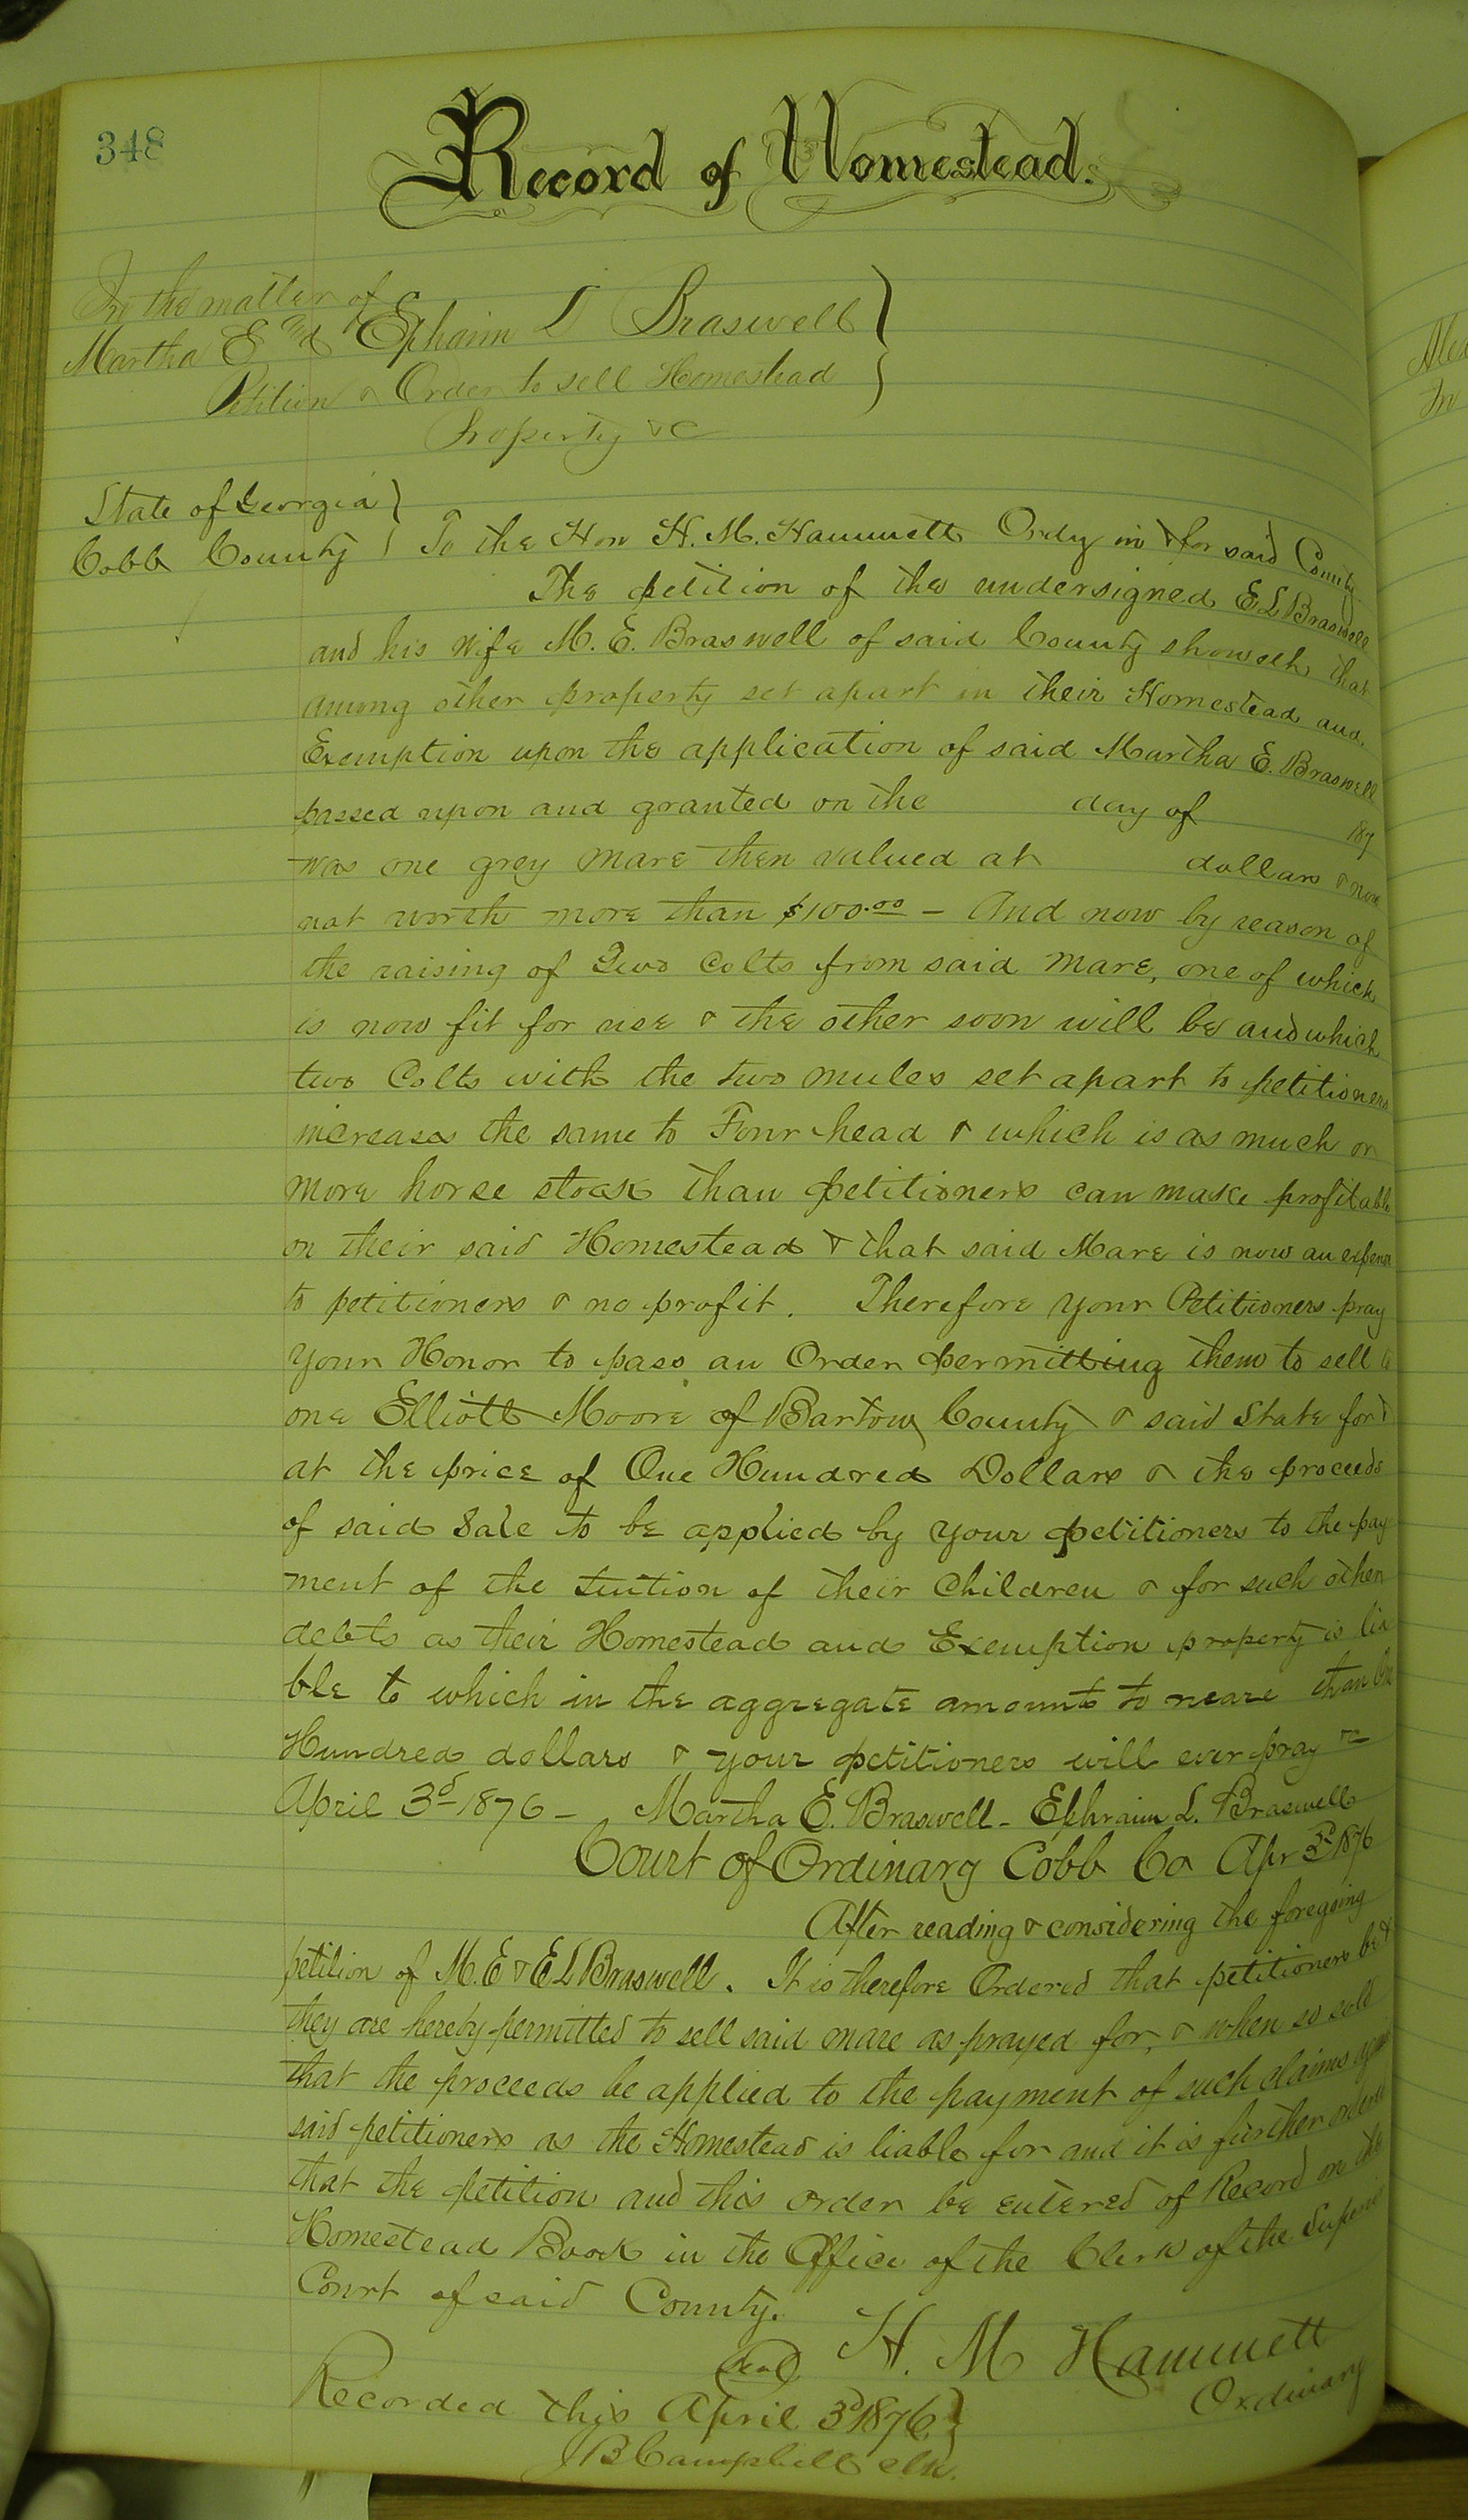 348
Record of Homestead.
In the matter of
Martha E and Ephaim L Braswell
Petition & Order to sell Homestead
Property &c
State of Georgia
Cobb County To the Hon H. M. Hammett Ordy in & for said County
The petition of the undersigned E L Braswell
and his wife M. E. Braswell of said County showeth that
among other property set apart in their Homestead and
Exemption upon the application of said Martha E. Braswell
passed upon and granted on the day of 187
was one grey mare then valued at dollars & now
not worth more than $100.00 – And now by reason of
the raising of Two Colts from said mare, one of which
is now fit for use & the other soon will be and which
two Colts with the two mules set apart to petitioners
increases the same to Four head & which is as much or
more horse stock than petitioners can make profitable
on their said Homestead & that said Mare is now an expense
to petitioners & no profit. Therefore your Petitioners pray
your Honor to pass an Order permitting them to sell
one Elliott Moore of Bartow County & said State for
at the price of One Hundred Dollars & the proceeds
of said Sale to be applied by your petitioners to the pay
ment of the tuition of their Children & for such other
debts as their Homestead and Exemption property is lia
ble to which in the aggregate amounts to more than
Hundred dollars & your petitioners will ever pray &c
April 3d 1876 – Martha E. Braswell – Ephraim L. Braswell
Court of Ordinary Cobb Co Apr 3d 1876
After reading & considering the foregoing
petition of M. E & E L Braswell. It is therefore Ordered that petitioners be &
they are hereby permitted to sell said mare as prayed for, & when so sold
that the proceeds be applied to the payment of such claims
said petitioners as the Homestead is liable for and it is further ordered
that the petition and this order be entered of Record on the
Homestead Book in the Office of the Clerk of the Superior
Court of said County.
Seal H. M Hammett
Ordinary
Recorded this April 3d 1876
J B Campbell clk.